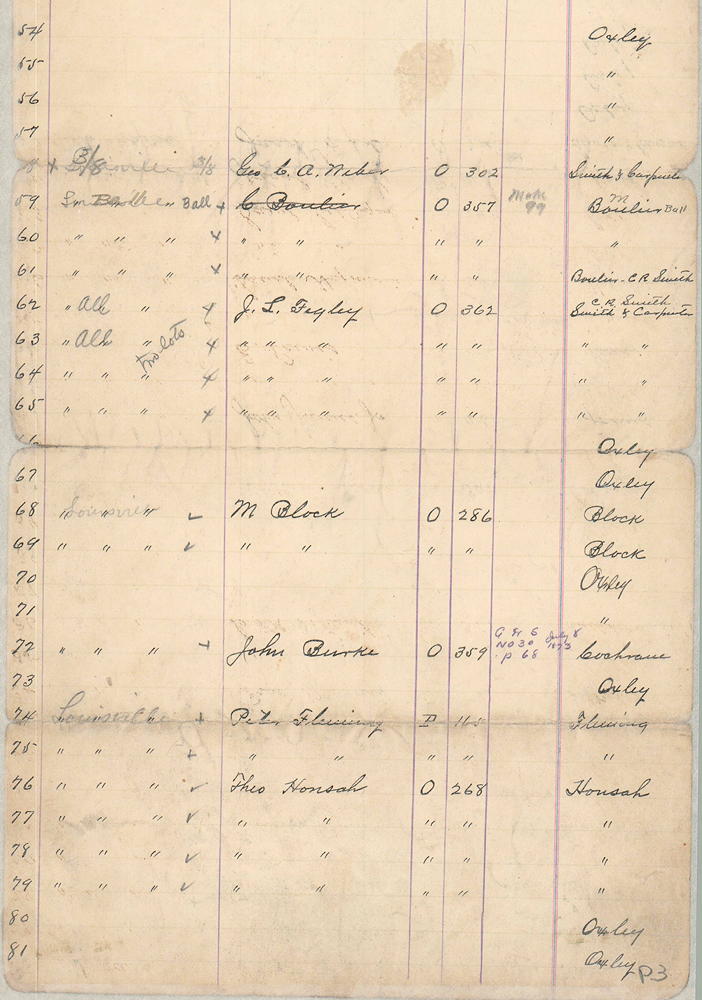 54 Oxley
55 "
56 "
57 "
x 3/8 3/8 Geo C. A. Weber O 302 Smith & Carpenter
59 " Ball x C Boulier O 357 99 Boulier M Ball
60 " " " x " " " " "
61 " " " x " " " " Boulier - C R Smith
C. R. Smith
62 " All " x J. L. Fegley O 362 Smith & Carpenter
63 " All " x " " " " " " "
two lots
64 " " " x " " " " " " "
65 " " " x " " " " " " "
Oxley
67 Oxley
68 " " " ✓ M Block O 286 Block
69 " " " ✓ " " " " Block
70 Oxley
71 "
72 " " " x John Burke O 359 G & S No 30 p 68 July 8 1873 Cochrane
73 Oxley
74 Louisville x Peter Fleming P 115 Fleming
75 " " " x " " " " "
76 " " " ✓ Theo Honsah O 268 Honsah
77 " " " ✓ " " " " "
78 " " " ✓ " " " " "
79 " " " ✓ " " " " "
80 Oxley
81 Oxley
p3